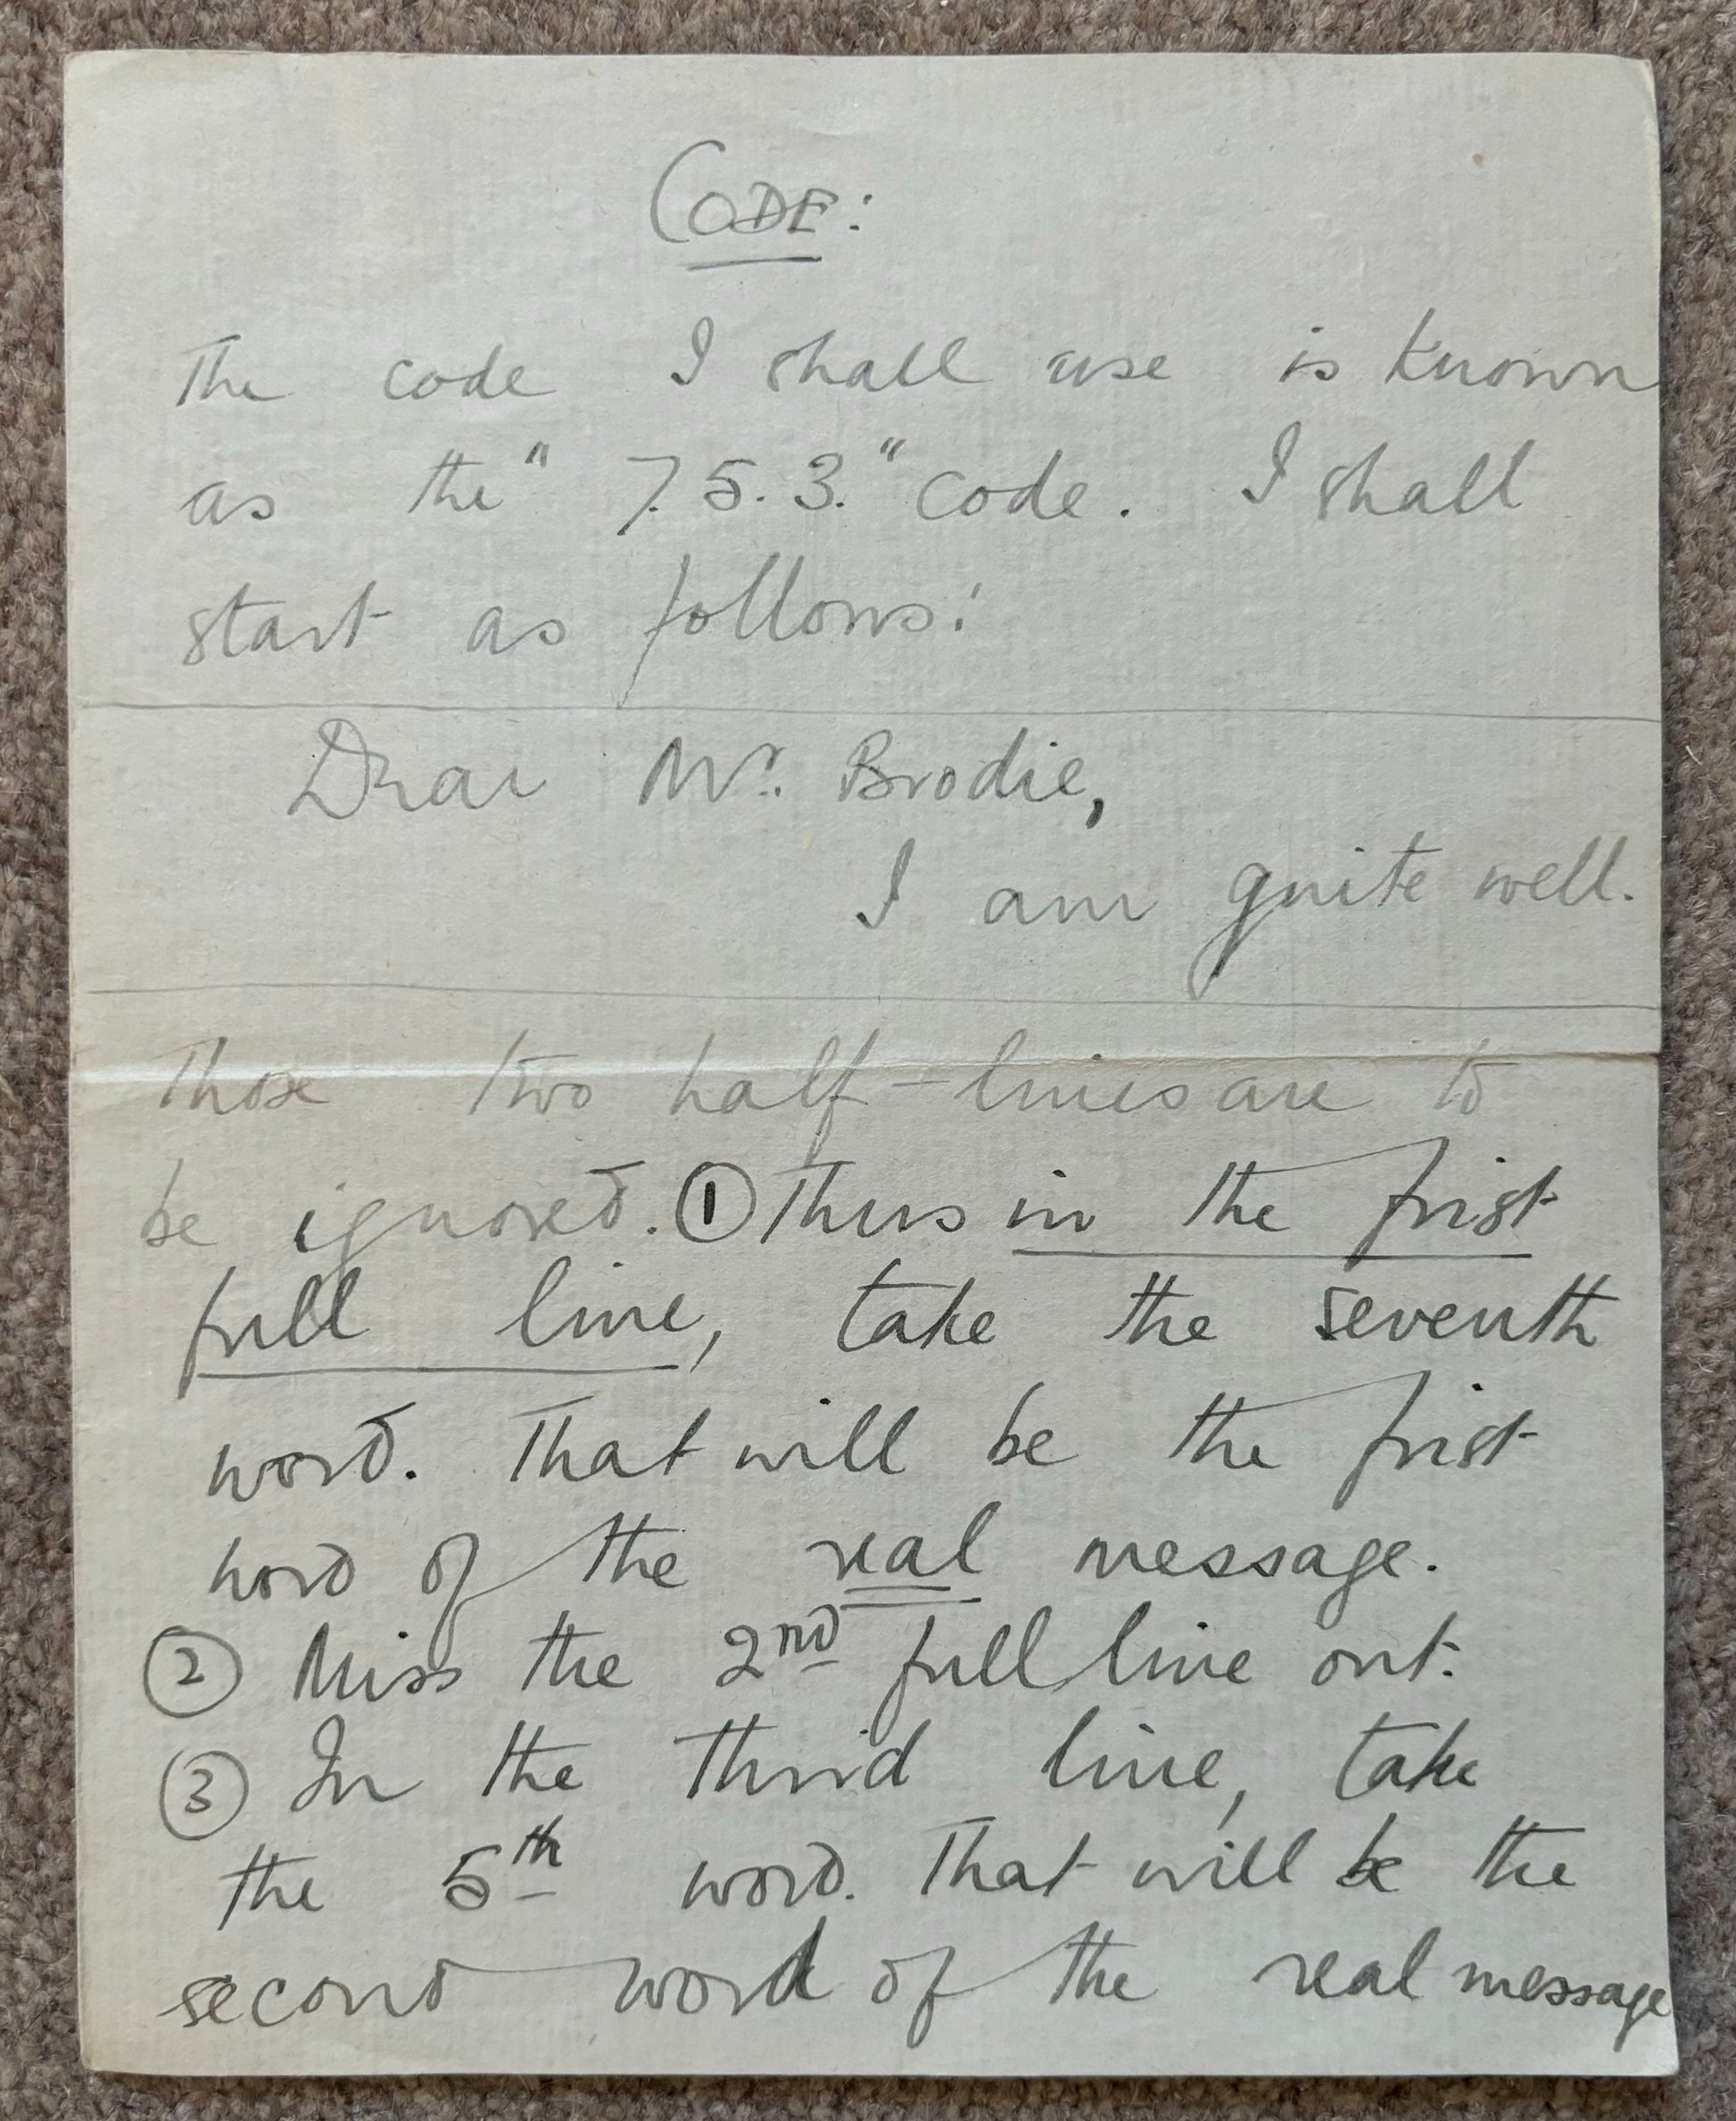 CODE:
The code I shall use is known
as the "7.5.3." code. I shall
start as follows:
Dear Mr. Brodie,
I am quite well.
Those two half-lines are to
be ignored. ① Thus in the first
full line, take the seventh
word. That will be the first
word of the real message.
② Miss the 2nd full line out.
③ In the third line, take
the 5th word. That will be the
second word of the real message